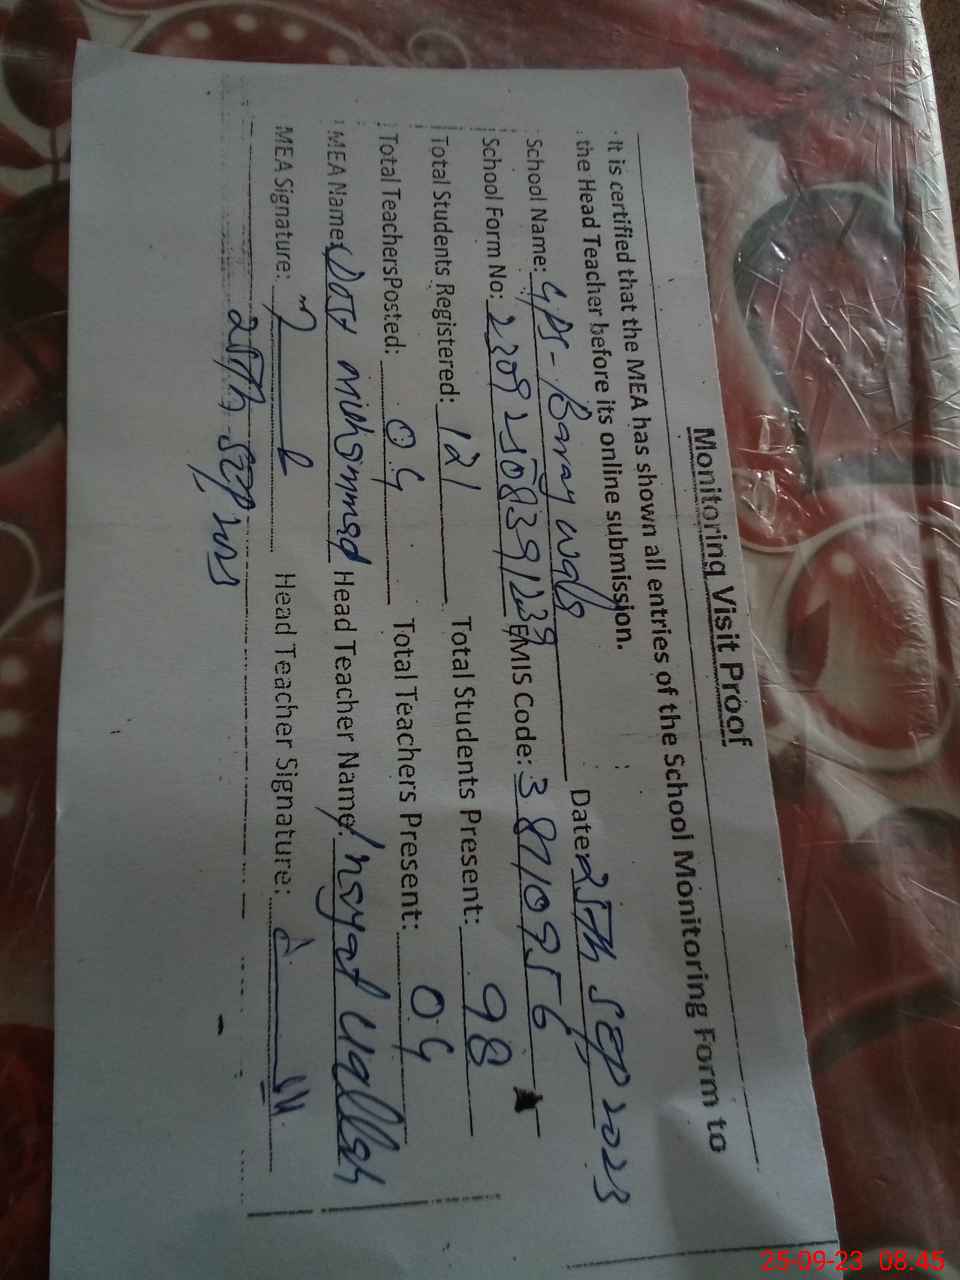 Monitoring Visit Proof
It is certified that the MEA has shown all entries of the School Monitoring Form to
the Head Teacher before its online submission.
School Name: GPS - Baray wala Date: 25Th Sep 2023
School Form No: EMIS Code: 38710956
Total Students Registered: 121 Total Students Present: 98
Total Teachers Posted: 04 Total Teachers Present: 04
MEA Name: Dost Muhammad Head Teacher Name: Inayat Uallah
MEA Signature: Head Teacher Signature:
25Th - Sep
25-09-23 08:45